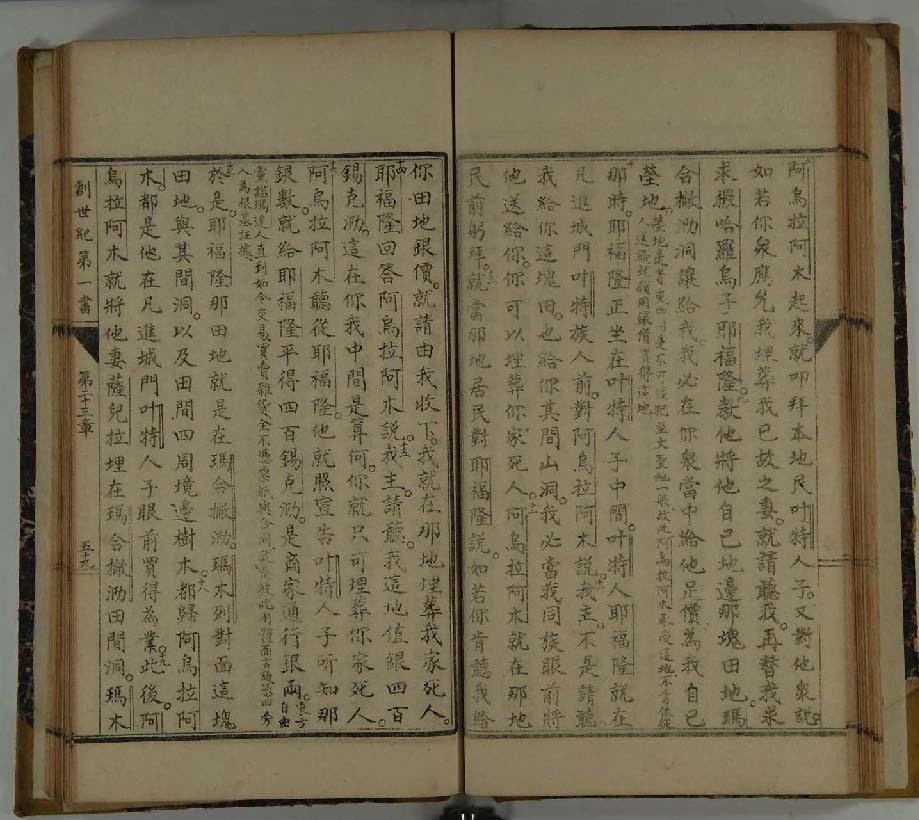 阿烏拉阿木起來。就叩拜本地民叶特人子。又對他衆說。
如若你衆應允我埋葬我已故之妻。就請聽我。再替我求
求撒哈羅烏子耶福隆。教他將他自己地邊那塊田地。瑪
合撇泐洞讓給我。我必在你衆當中給他足價為我自己
塋地。
那時。耶福隆正坐在叶特人子中間。叶特人耶福隆就在
凡進城門叶特族人前。對阿烏拉阿木說。十一我主。不是。請聽。
我給你這塊田。也給你其間山洞。我必當我同族眼前將
他送給你。你可以埋葬你家死人。十二阿烏拉阿木就在那地
民前躬拜。十三就當那地居民對耶福隆說。如若你肯聽我給
你田地銀價。就請由我收下。我就在那地埋葬我家死人。
十四耶福隆回答阿烏拉阿木說。十五我主。請聽。我這地值銀四百
錫克泐。這在你我中間是算何。你就只可埋葬你家死人。
十六阿烏拉阿木聽從耶福隆。他就照宣告叶特人子所知那
銀數。就給耶福隆平得四百錫克泐。是商家通行銀兩。東方自由
賣諾瑪達人直到如今交易買賣雜貨全不憑票紙與合同
人為根基証據
十七於是。耶福隆那田地就是在瑪合撇泐。瑪木列對面這塊
田地。與其間洞。以及田間四周境邊樹木。十八都歸阿烏拉阿
木。都是他在凡進城門叶特人子眼前買得為業。十九此後。阿
烏拉阿木就將他妻薩兒拉埋在瑪合撇泐田間洞。瑪木
創世紀第一書 第二十三章 五十九